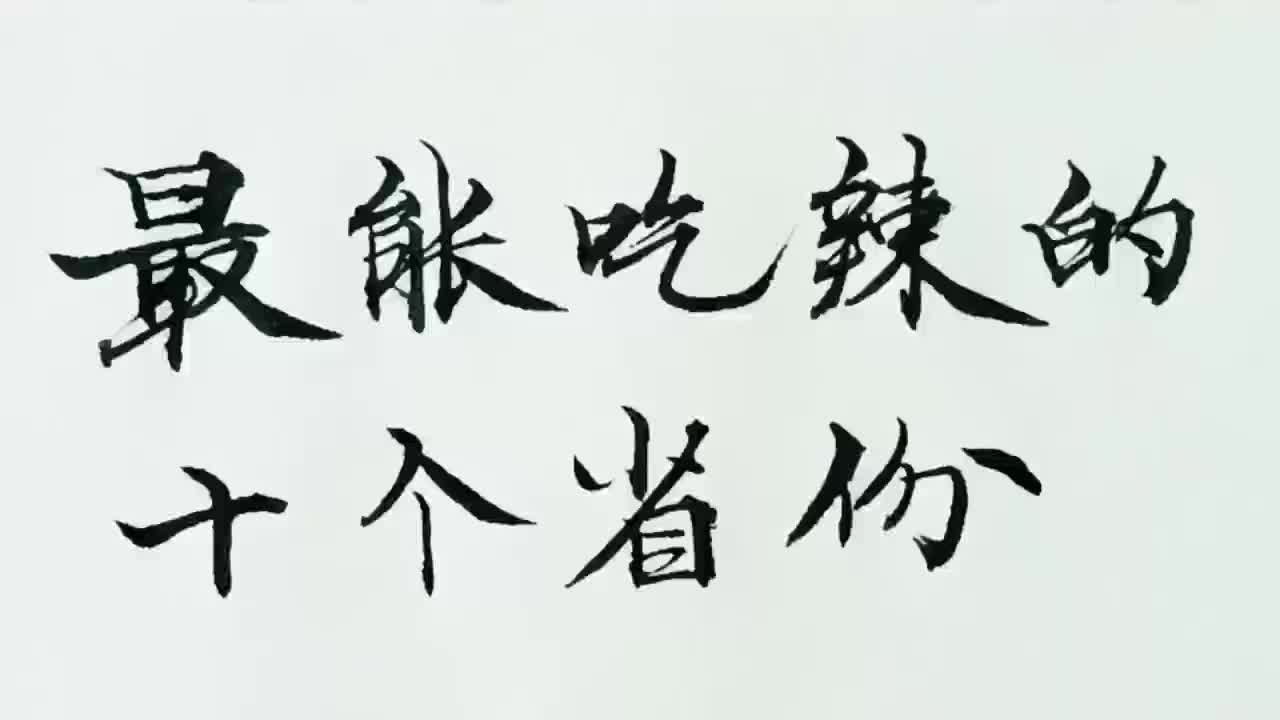 最能吃辣的
十个省份